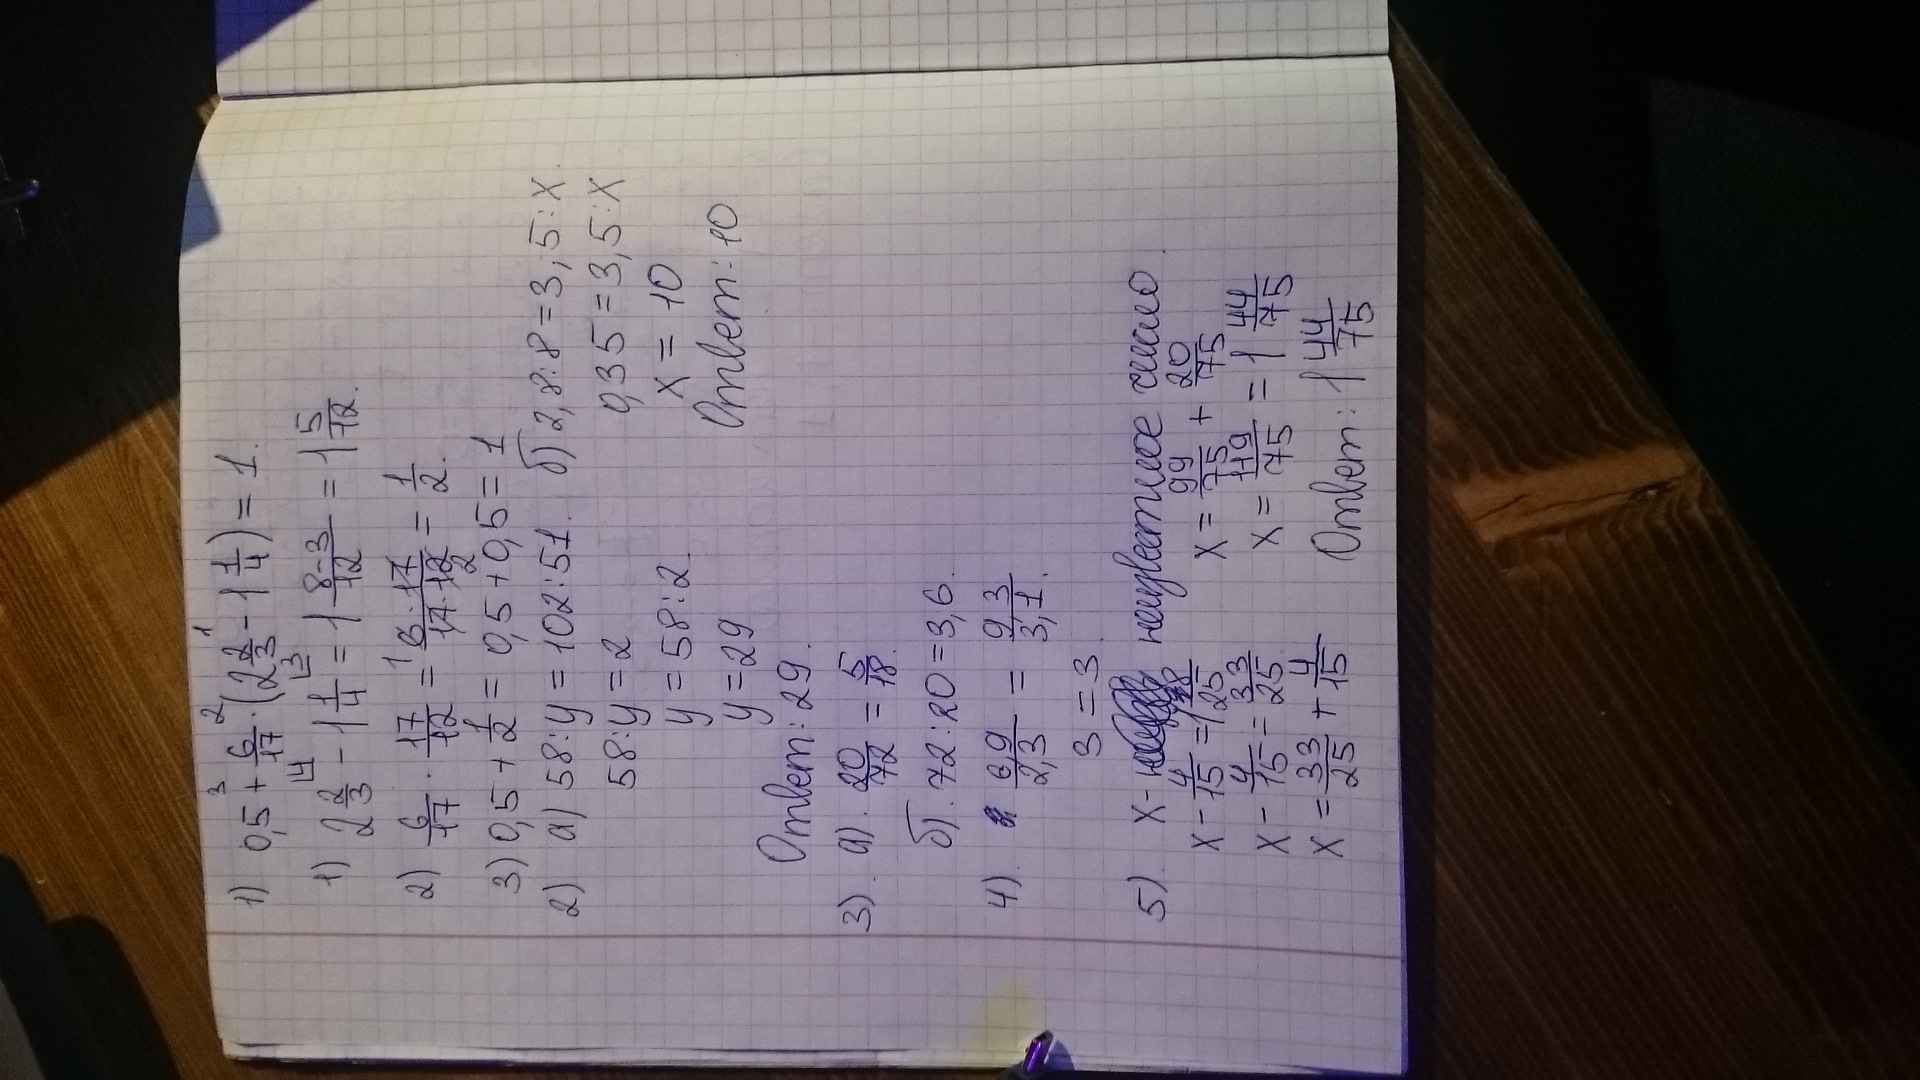 1) 0,5 + 6/17 · (2 2/3 - 1 1/4) = 1.
1) 2 2/3 - 1 1/4 = 1 8-3/12 = 1 5/12.
2) 6/17 · 17/12 = 6·17/17·12 = 1/2.
3) 0,5 + 1/2 = 0,5 + 0,5 = 1
2) а) 58 : у = 102 : 51.
58 : у = 2
у = 58 : 2
у = 29
Ответ: 29.
б) 2,8 : 8 = 3,5 : х.
0,35 = 3,5 : х
х = 10
Ответ: 10
3). а). 20/72 = 5/18.
б). 72 : 20 = 3,6.
4). 6,9/2,3 = 9,3/3,1.
3 = 3.
5). х - неизвестное число.
х - 4/15 = 1 8/25
х - 4/15 = 33/25.
х = 33/25 + 4/15
х = 99/75 + 20/75
х = 119/75 = 1 44/75
Ответ: 1 44/75